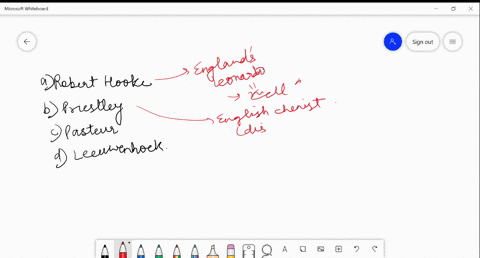 Microsoft Whiteboard
Sign out
a) Robert Hooke → England's
Leonardo
→ "cell"
b) Priestley → English chemist
(dis
c) Pasteur
d) Leeuwenhoek.
A